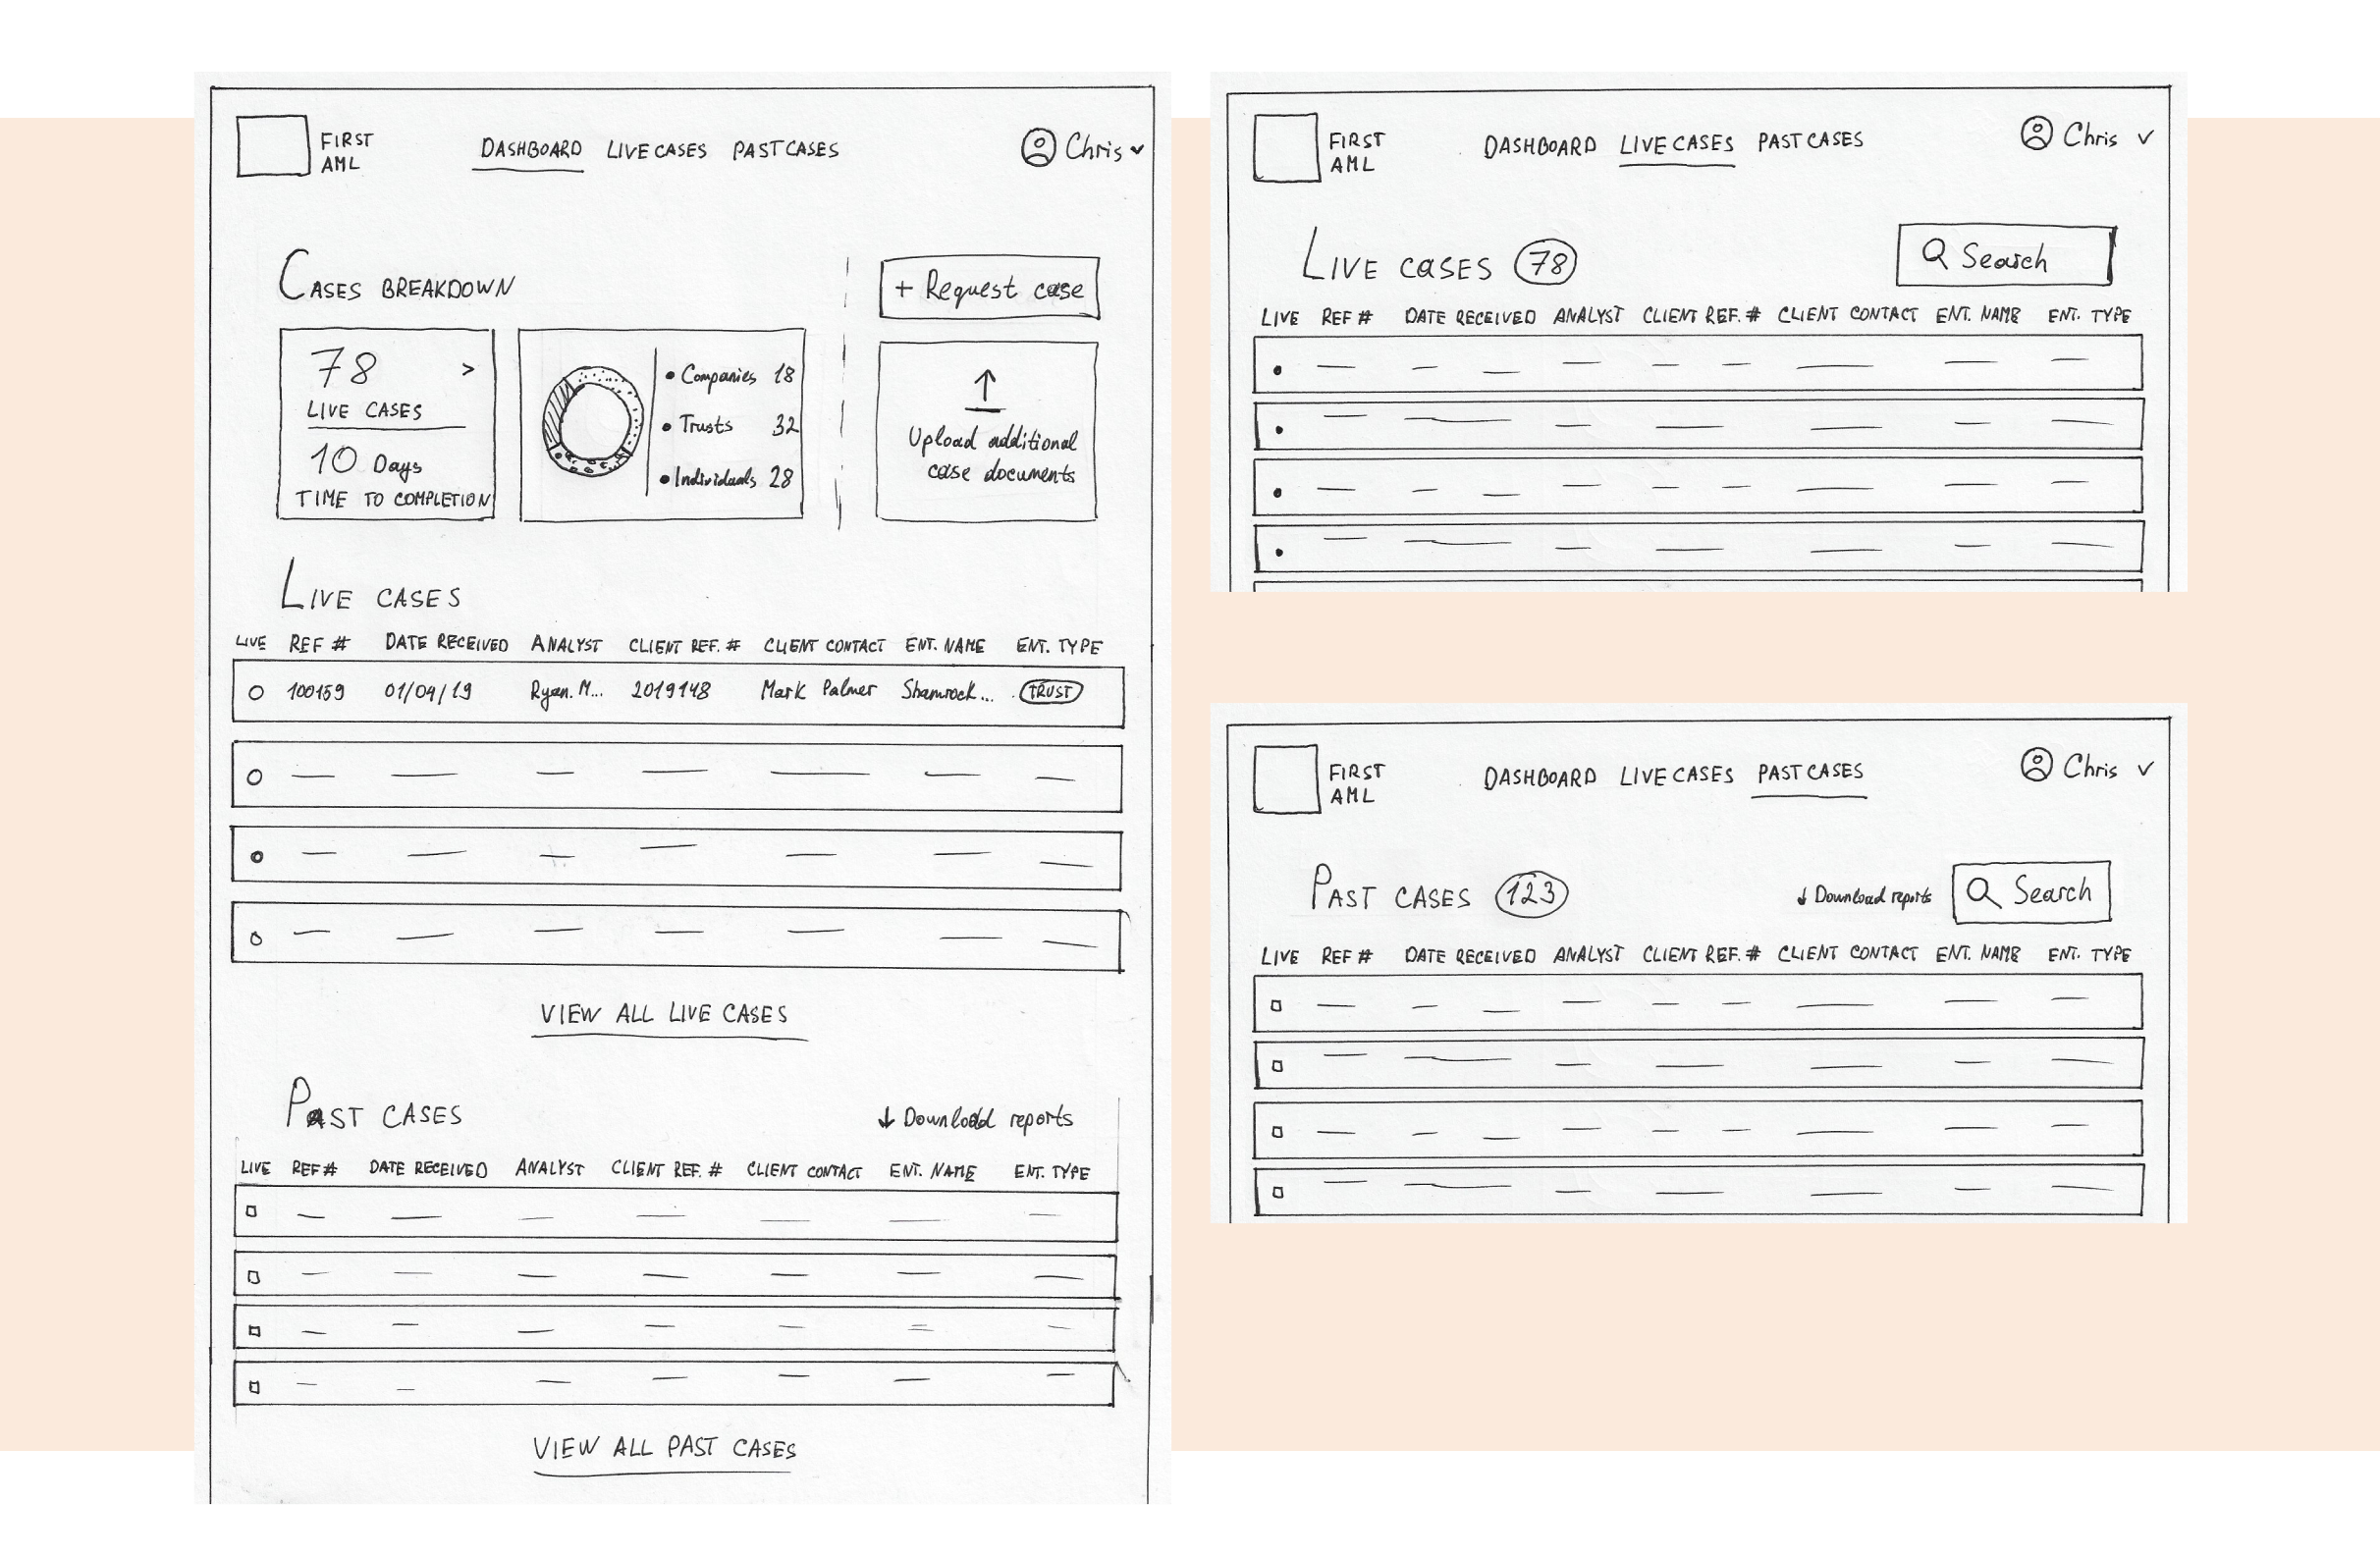 FIRST
AML
DASHBOARD LIVE CASES PAST CASES
Chris
CASES BREAKDOWN
+ Request case
78 >
LIVE CASES
10 Days
TIME TO COMPLETION
• Companies 18
• Trusts 32
• Individuals 28
Upload additional
case documents
LIVE CASES
LIVE REF # DATE RECEIVED ANALYST CLIENT REF. # CLIENT CONTACT ENT. NAME ENT. TYPE
100159 01/04/19 Ryan. M... 2019148 Mark Palmer Shamrock... TRUST
VIEW ALL LIVE CASES
PAST CASES
↓ Download reports
LIVE REF # DATE RECEIVED ANALYST CLIENT REF. # CLIENT CONTACT ENT. NAME ENT. TYPE
VIEW ALL PAST CASES
FIRST
AML
DASHBOARD LIVE CASES PAST CASES
Chris
LIVE CASES 78
Search
LIVE REF # DATE RECEIVED ANALYST CLIENT REF. # CLIENT CONTACT ENT. NAME ENT. TYPE
FIRST
AML
DASHBOARD LIVE CASES PAST CASES
Chris
PAST CASES 123
↓ Download reports
Search
LIVE REF # DATE RECEIVED ANALYST CLIENT REF. # CLIENT CONTACT ENT. NAME ENT. TYPE